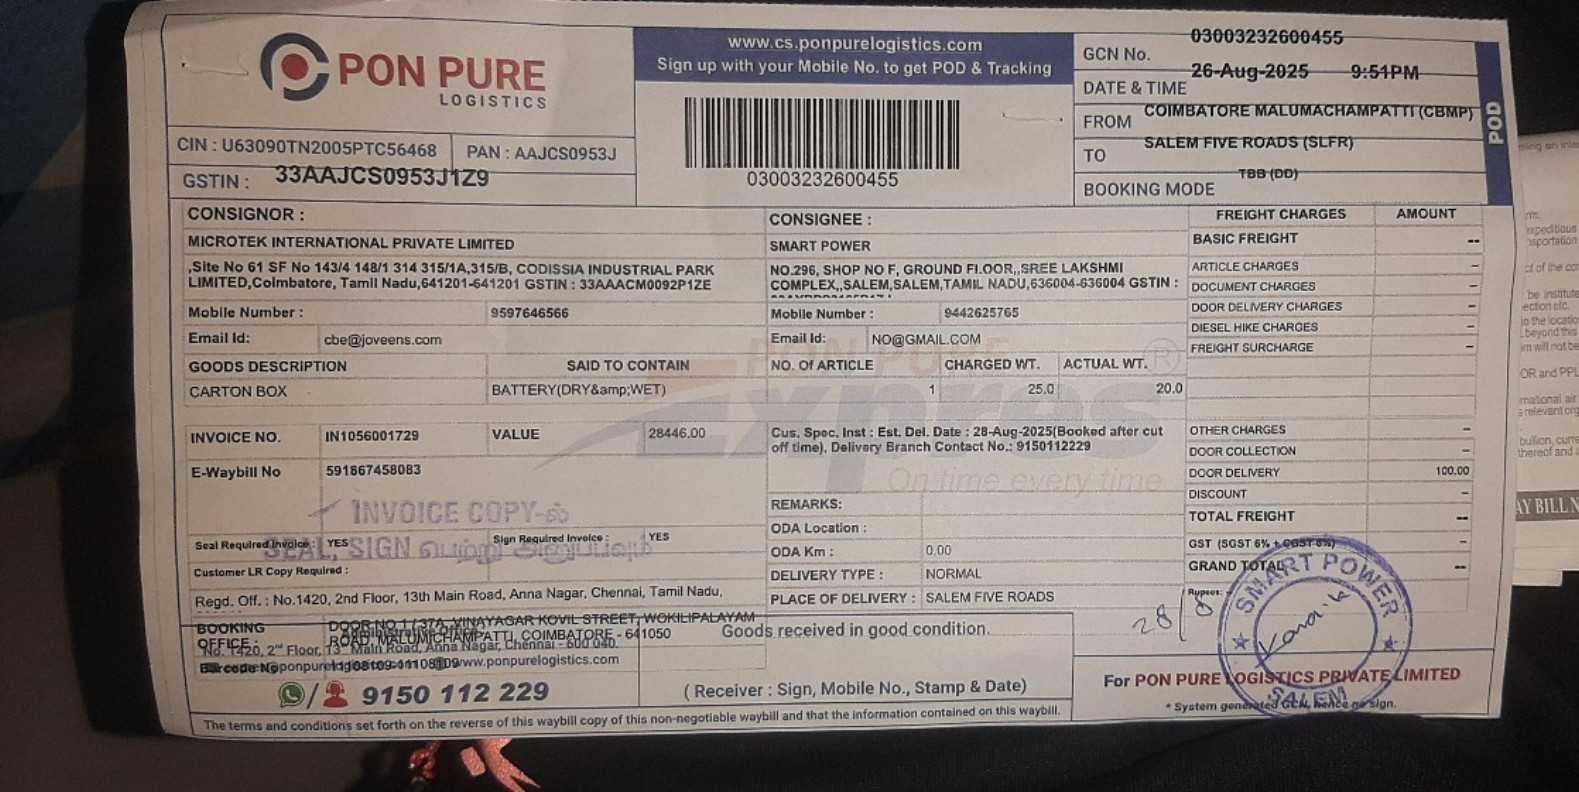 PON PURE
LOGISTICS
www.cs.ponpurelogistics.com
Sign up with your Mobile No. to get POD & Tracking
03003232600455
GCN No. 03003232600455
DATE & TIME 26-Aug-2025 9:51PM
FROM COIMBATORE MALUMACHAMPATTI (CBMP)
TO SALEM FIVE ROADS (SLFR)
BOOKING MODE TBB (DD)
POD
CIN : U63090TN2005PTC56468 PAN : AAJCS0953J
GSTIN : 33AAJCS0953J1Z9
CONSIGNOR :
MICROTEK INTERNATIONAL PRIVATE LIMITED
,Site No 61 SF No 143/4 148/1 314 315/1A,315/B, CODISSIA INDUSTRIAL PARK
LIMITED,Coimbatore, Tamil Nadu,641201-641201 GSTIN : 33AAACM0092P1ZE
Mobile Number : 9597646566
Email Id: cbe@joveens.com
GOODS DESCRIPTION SAID TO CONTAIN
CARTON BOX BATTERY(DRY&amp;WET)
INVOICE NO. IN1056001729 VALUE 28446.00
E-Waybill No 591867458083
INVOICE COPY-ல்
SEAL, SIGN பெற்று அனுப்பவும்
Seal Required Invoice : YES Sign Required Invoice : YES
Customer LR Copy Required :
Regd. Off. : No.1420, 2nd Floor, 13th Main Road, Anna Nagar, Chennai, Tamil Nadu,
BOOKING OFFICE : DOOR NO 1 / 37A, VINAYAGAR KOVIL STREET, WOKILIPALAYAM
ROAD, MALUMICHAMPATTI, COIMBATORE - 641050
No. 1420, 2nd Floor, 13th Main Road, Anna Nagar, Chennai - 600 040.
Barcode No
www.ponpurelogistics.com
/ 9150 112 229
CONSIGNEE :
SMART POWER
NO.296, SHOP NO F, GROUND FLOOR,,SREE LAKSHMI
COMPLEX,,SALEM,SALEM,TAMIL NADU,636004-636004 GSTIN :
Mobile Number : 9442625765
Email Id: NO@GMAIL.COM
NO. Of ARTICLE CHARGED WT. ACTUAL WT.
1 25.0 20.0
PON PURE
Expres
On time every time
Cus. Spec. Inst : Est. Del. Date : 28-Aug-2025(Booked after cut
off time), Delivery Branch Contact No.: 9150112229
REMARKS:
ODA Location :
ODA Km : 0.00
DELIVERY TYPE : NORMAL
PLACE OF DELIVERY : SALEM FIVE ROADS
Goods received in good condition.
( Receiver : Sign, Mobile No., Stamp & Date)
FREIGHT CHARGES AMOUNT
BASIC FREIGHT --
ARTICLE CHARGES -
DOCUMENT CHARGES -
DOOR DELIVERY CHARGES -
DIESEL HIKE CHARGES -
FREIGHT SURCHARGE -
OTHER CHARGES -
DOOR COLLECTION -
DOOR DELIVERY 100.00
DISCOUNT -
TOTAL FREIGHT --
GST (SGST 6% + CGST 6%) -
GRAND TOTAL --
Rupees:
28/8
SMART POWER
SALEM
For PON PURE LOGISTICS PRIVATE LIMITED
* System generated GCN, hence no sign.
The terms and conditions set forth on the reverse of this waybill copy of this non-negotiable waybill and that the information contained on this waybill.
OR and PPL
AY BILL N